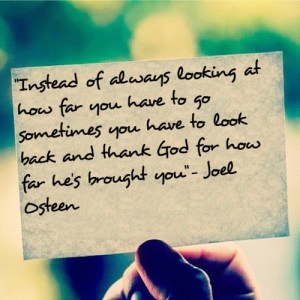 "Instead of always looking at
how far you have to go
sometimes you have to look
back and thank God for how
far he's brought you"- Joel
Osteen